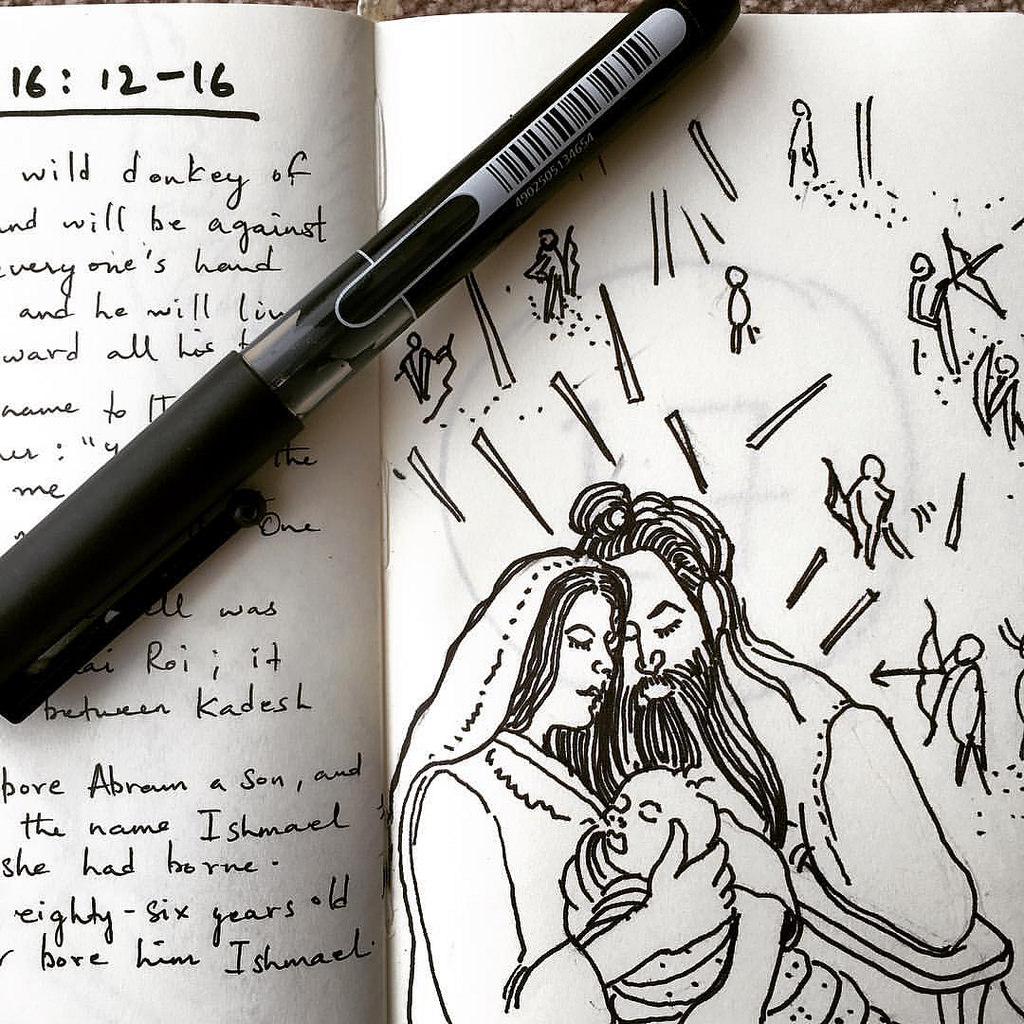 16: 12-16
wild donkey of
and will be against
everyone's hand
and he will
ward all his
name to
the
me
One
was
Roi; it
between Kadesh
bore Abram a son, and
the name Ishmael
she had borne.
eighty-six years old
bore him Ishmael.
4902505134654